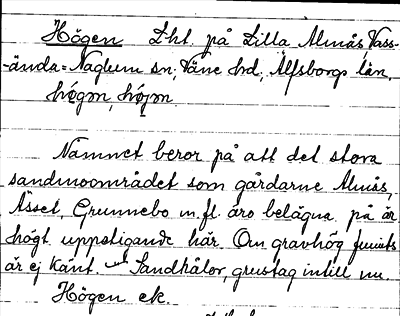 Högen Lht. på Lilla Almås Vass-
-ända-Naglum sn, Väne hd, Älfsborgs län.
högɔn, höjɔn.
Namnet beror på att det stora
sandmoområdet som gårdarne Almås,
Åsset, Grunnebo m.fl. äro belägna på är
högt uppstigande här. Om gravhög funnits
är ej känt. Sandhålor, grustag intill nu.
Högen ek.